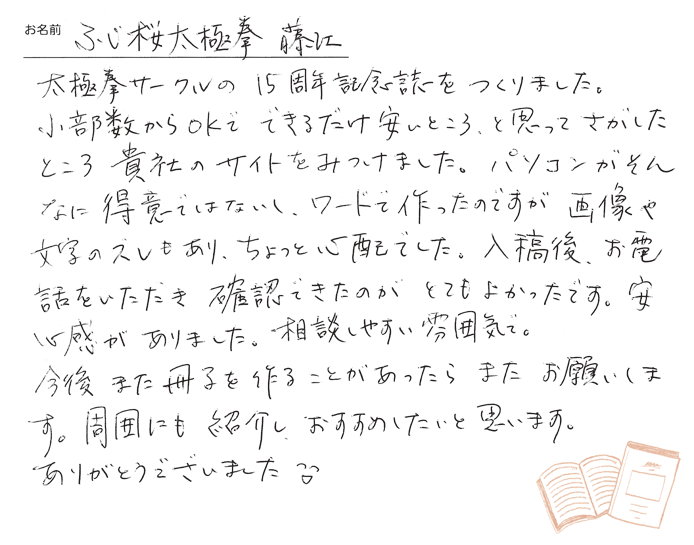 お名前 ふじ桜太極拳 藤江
太極拳サークルの 15周年記念誌を つくりました。
小部数からOKで できるだけ安いところ、と思って さがした
ところ 貴社の サイトをみつけました。パソコンがそん
なに 得意ではないし、ワードで作ったのですが 画像や
文字のズレもあり、ちょっと心配でした。入稿後、お電
話をいただき 確認できたのが とてもよかったです。安
心感が ありました。相談しやすい雰囲気で。
今後 また 冊子を 作る ことがあったら また お願いしま
す。周囲にも 紹介し、おすすめしたいと思います。
ありがとうございました